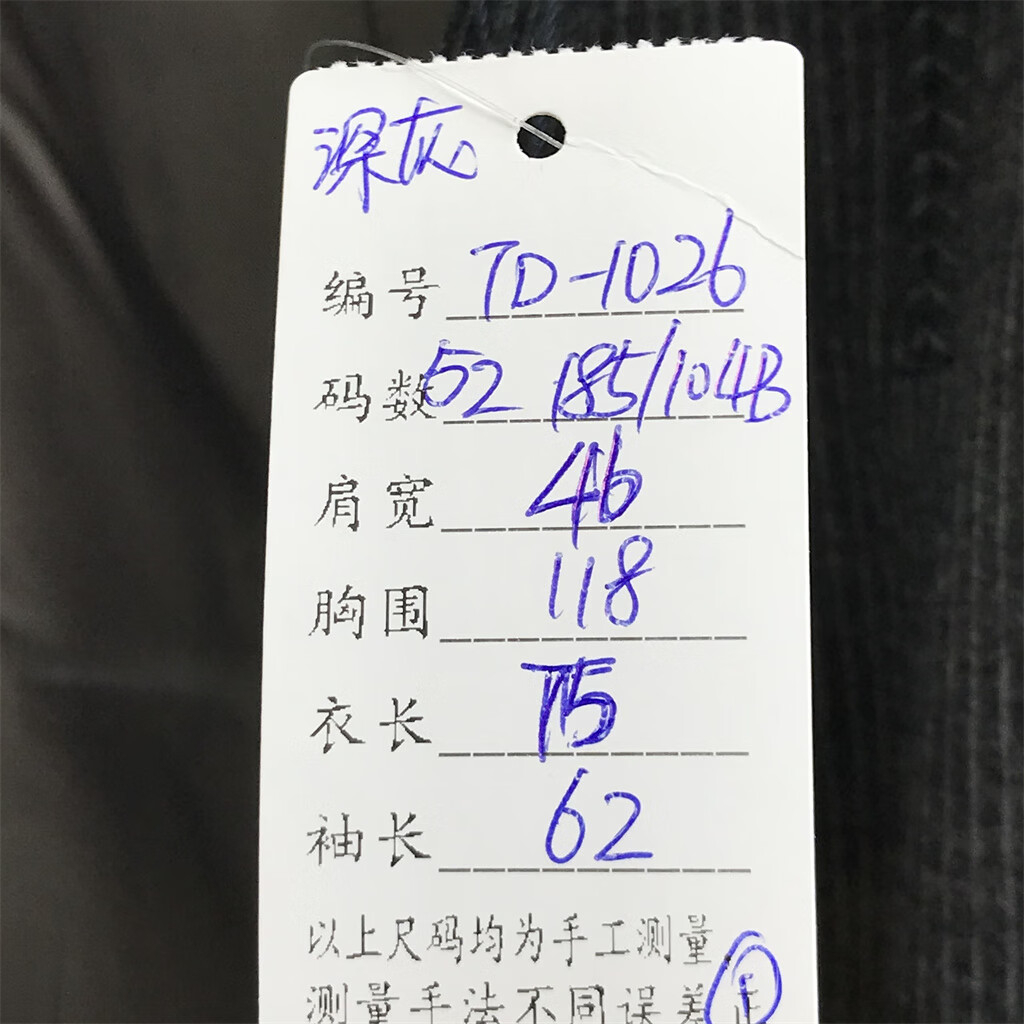 深灰
编号 TD-1026
码数 52 185/104B
肩宽 46
胸围 118
衣长 75
袖长 62
以上尺码均为手工测量
测量手法不同误差